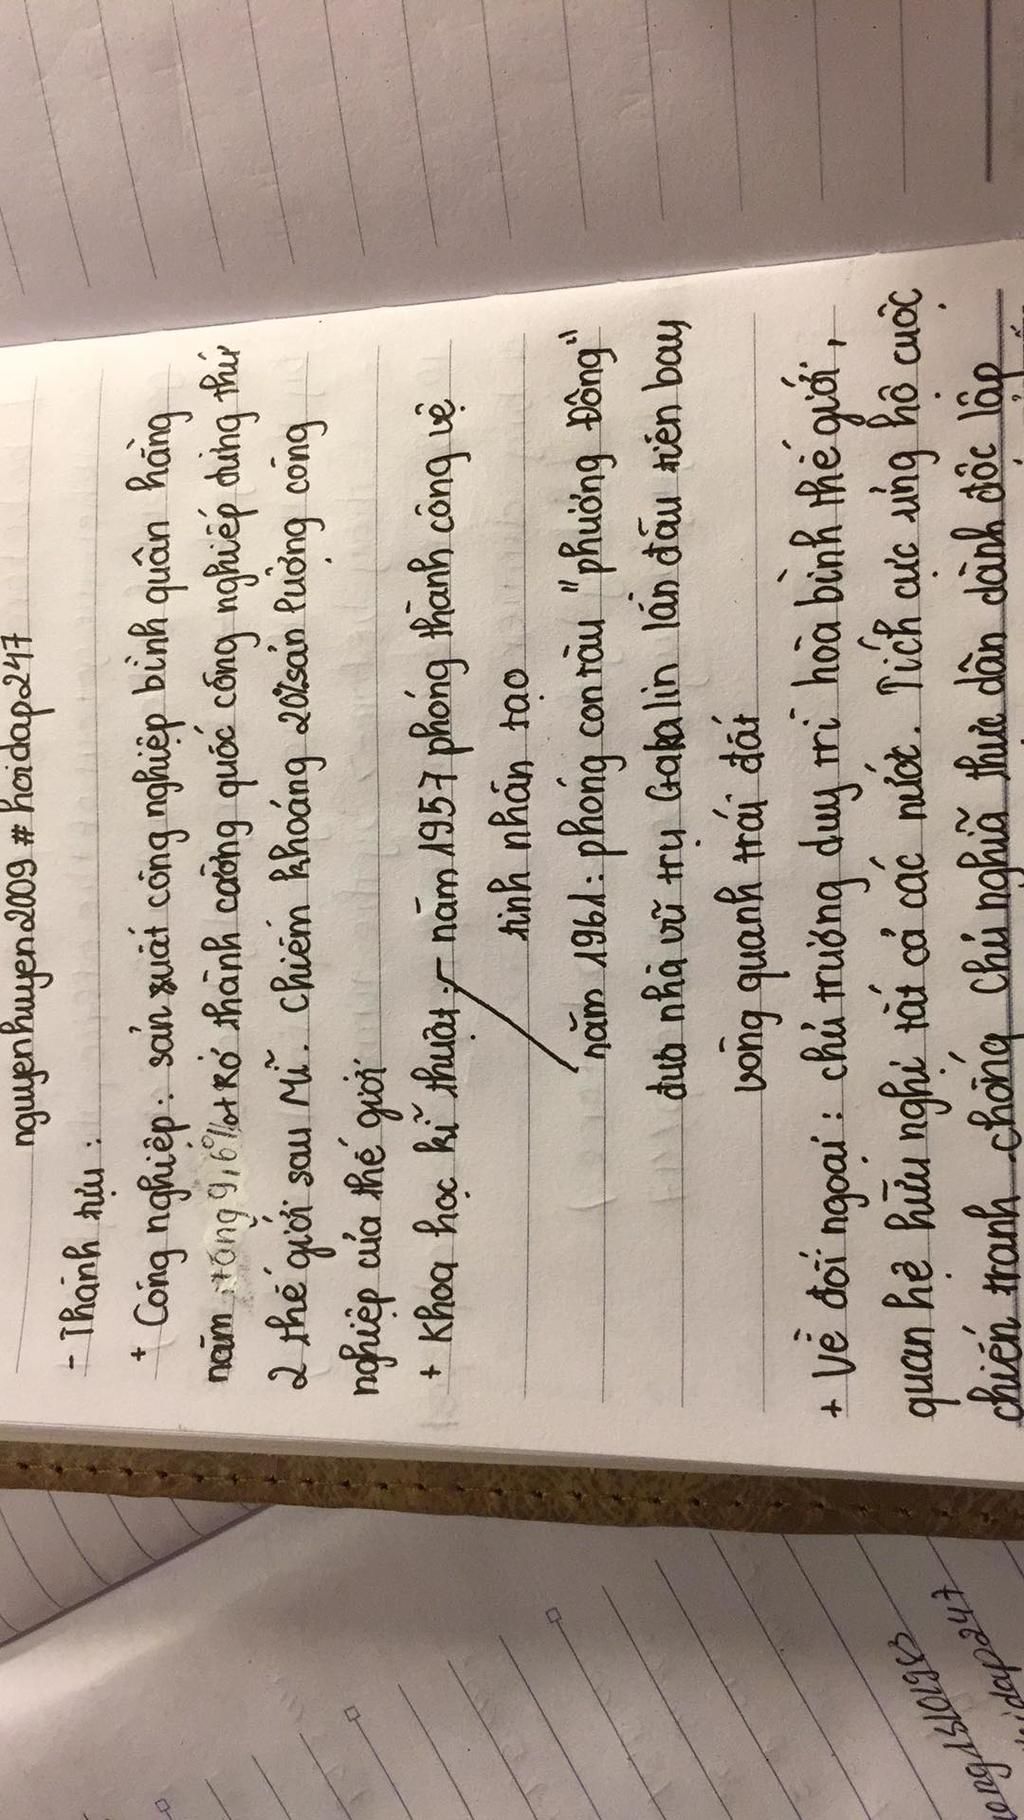 nguyenhuyen2009 # hoidap247
- Thành tựu :
+ Công nghiệp : sản xuất công nghiệp bình quân hằng
năm tăng 9,6% trở thành cường quốc công nghiệp đứng thứ
2 thế giới sau Mĩ. chiếm khoảng 20% sản lượng công
nghiệp của thế giới
+ Khoa học kĩ thuật : - năm 1957 phóng thành công vệ
tinh nhân tạo
năm 1961 : phóng con tàu "phương Đông"
đưa nhà vũ trụ Gakalin lần đầu tiên bay
vòng quanh trái đất
+ Về đối ngoại : chủ trương duy trì hòa bình thế giới,
quan hệ hữu nghị tất cả các nước. Tích cực ủng hộ cuộc
chiến tranh chống chủ nghĩa thực dân dành độc lập